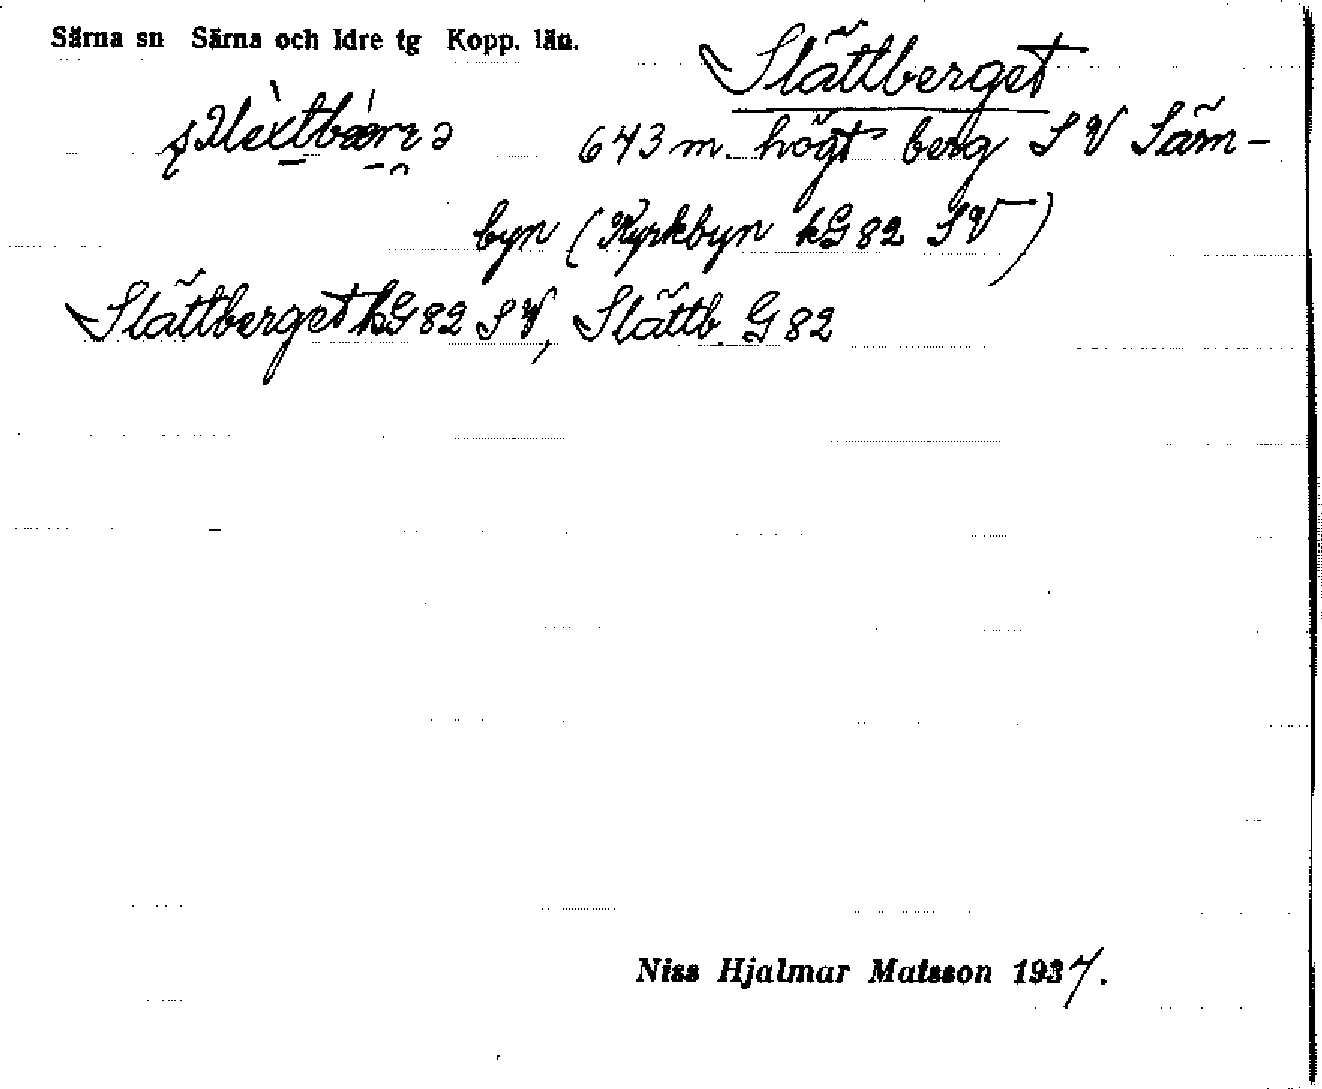 Särna sn Särna och Idre tg Kopp. län.
Slättberget
643 m. högt berg SV Särn-
byn (Kyrkbyn kG82 SV)
Slättberget kG82 SV, Slättb. G82
Niss Hjalmar Matsson 1937.